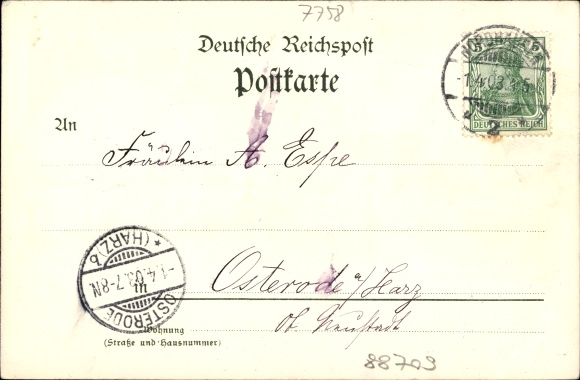 7758
Deutsche Reichspost
Postkarte
NORDHAUSEN
-1.4.03.
2
5
DEUTSCHES REICH
An
Fräulein A. Espe
OSTERODE
* (HARZ) b
-1.4.03.7-8N.
Osterode a/Harz
ob. Neustadt
Wohnung
(Straße und Hausnummer)
88709